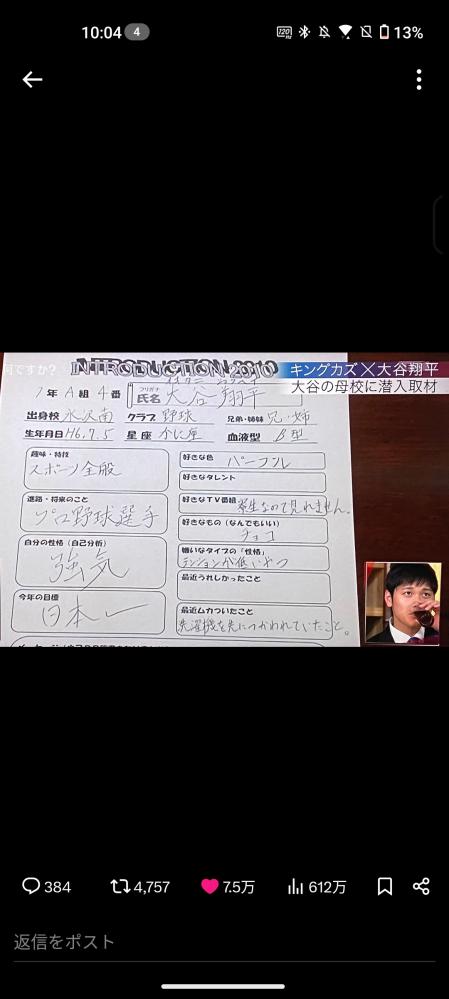 10:04 4 13%
何ですか?
INTRODUCTION 2010
キングカズ×大谷翔平
大谷の母校に潜入取材
1年 A組 4番
フリガナ
氏名 大谷 翔平
出身校 水沢南 クラブ 野球 兄弟・姉妹 兄・姉
生年月日 H6.7.5 星座 かに座 血液型 B型
趣味・特技
スポーツ全般
進路・将来のこと
プロ野球選手
自分の性格(自己分析)
強気
今年の目標
日本一
好きな色
パープル
好きなタレント
好きなTV番組
寮生なので見れません。
好きなもの(なんでもいい)
チョコ
嫌いなタイプの「性格」
テンションが低いやつ
最近うれしかったこと
最近ムカついたこと
洗濯機を先につかわれていたこと。
384 4,757 7.5万 612万
返信をポスト